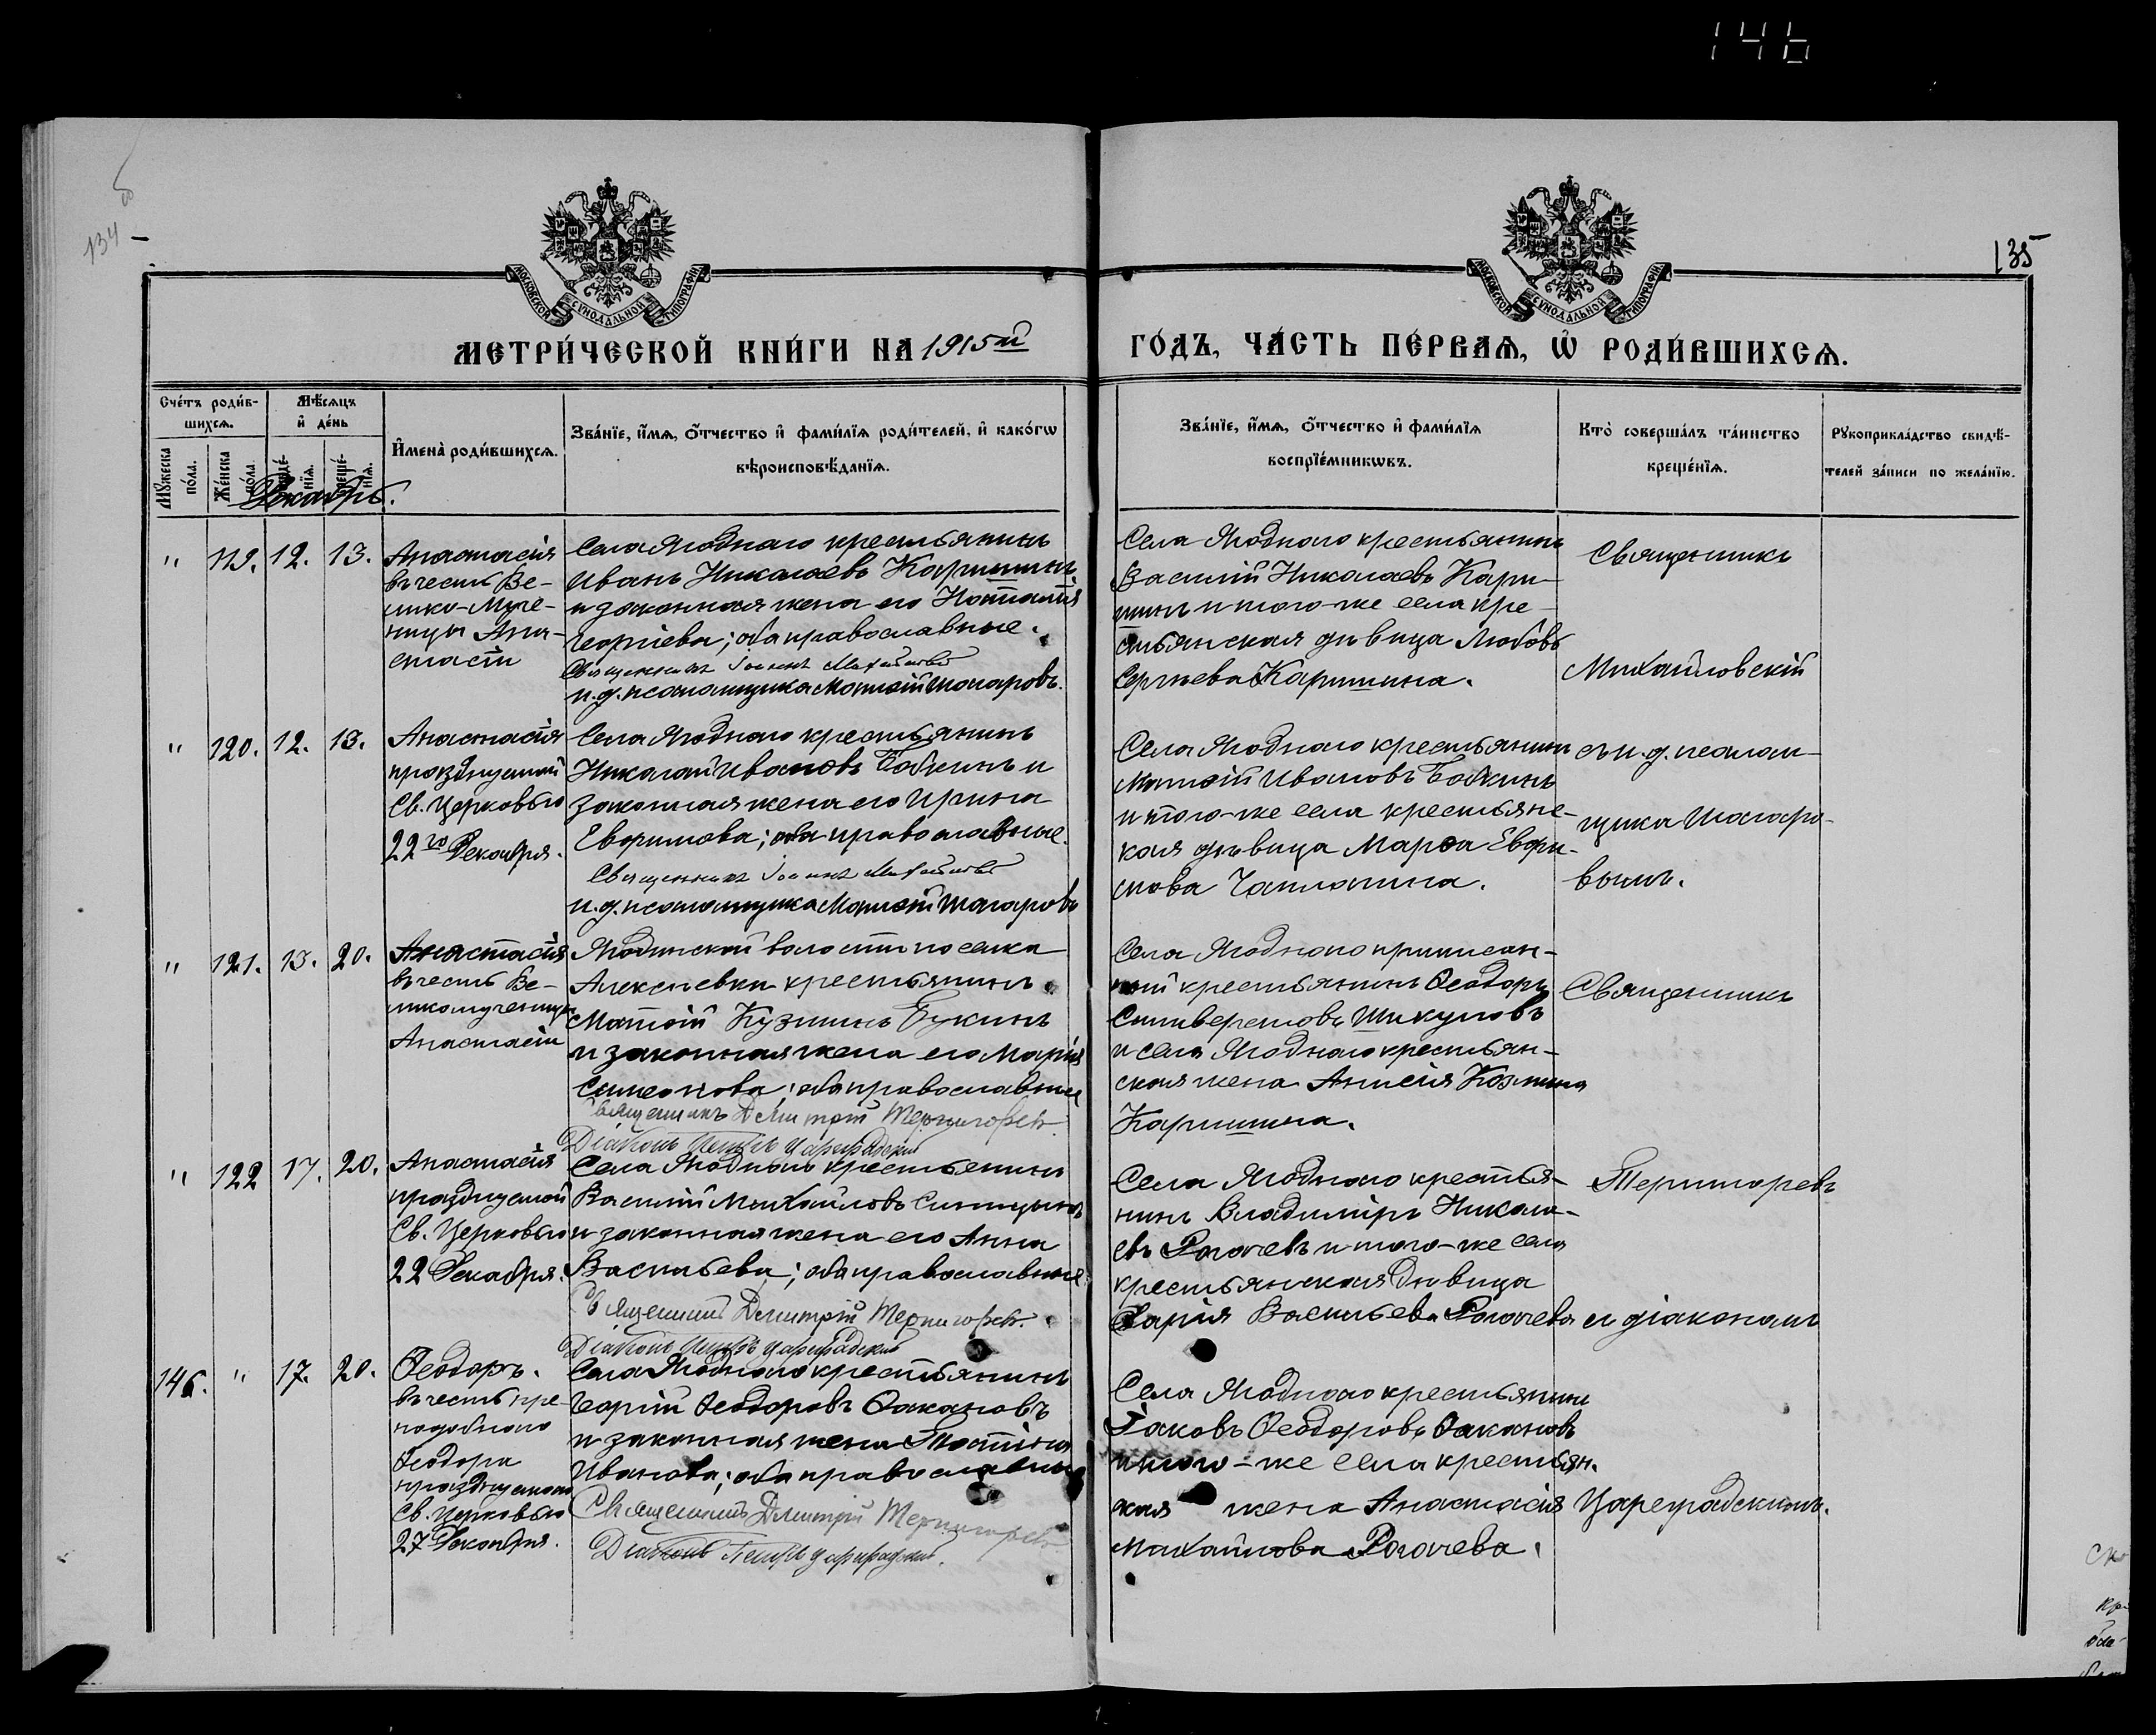 146
134 об
135
МОСКОВСКОЙ СѴНОДАЛЬНОЙ ТИПОГРАФІИ
МОСКОВСКОЙ СѴНОДАЛЬНОЙ ТИПОГРАФІИ
МЕТРИ́ЧЕСКОЙ КНИ́ГИ НА 1915й ГО́ДЪ, ЧА́СТЬ ПЕ́РВАѦ, Ѡ҆ РОДИ́ВШИХСѦ.
Сче́тъ роди́в-
шихсѧ.
Мѣ́сѧцъ
и҆ де́нь
Мꙋ́жеска по́ла.
Же́нска по́ла.
И҆мена̀ роди́вшихсѧ.
Зва́нїе, и҆́мѧ, ѻ҆́тчество и҆ фами́лїѧ роди́телей, и҆ како́гѡ
вѣроисповѣ́данїѧ.
Зва́нїе, и҆́мѧ, ѻ҆́тчество и҆ фами́лїѧ
воспрїе́мникѡвъ.
Кто̀ соверша́лъ та́инство
креще́нїѧ.
Рꙋкоприкла́дство свидѣ́-
телей за́писи по жела́нїю.
Декабрь.
" 119. 12. 13.
Анастасія
въ честь Ве-
лико-Муче-
ницы Ана-
стасіи
Села Ягоднаго крестьянинъ
Иванъ Николаевъ Каришинъ
и законная жена его Наталія
Георгіева; оба православные.
Священникъ Іоаннъ Михайловскій
и.д. псаломщика Матѳій Шагаровъ.
Села Ягоднаго крестьянинъ
Василій Николаевъ Кари-
шинъ и того-же села кре-
стьянская дѣвица Любовь
Сергѣева Каришина.
Священникъ
Михайловскій
" 120. 12. 13.
Анастасія
празднуемой
Св. Церковью
22го Декабря.
Села Ягоднаго крестьянинъ
Николай Ивановъ Бабкинъ и
законная жена его Ирина
Евфимова; оба православные.
Священникъ Іоаннъ Михайловскій
и.д. псаломщика Матѳій Шагаровъ
Села Ягоднаго крестьянинъ
Матѳій Ивановъ Бабкинъ
и того-же села крестьянс-
кая дѣвица Марѳа Евфи-
мова Чаплагина.
съ и.д. псалом-
щика Шагаро-
вымъ.
" 121. 13. 20.
Анастасія
въ честь Ве-
ликомученицы
Анастасіи
Ягодинской волости поселка
Алексѣевки крестьянинъ
Матѳій Кузминъ Букинъ
и законная жена его Марія
Симеонова; оба православные
Священникъ Димитрій Терпигоревъ
Діаконъ Петръ Цареградскій
Села Ягоднаго приписан-
ный крестьянинъ Ѳеодоръ
Селиверстовъ Шикуловъ
и села Ягоднаго крестьян-
ская жена Анисія Козмина
Каришина.
Священникъ
" 122 17. 20.
Анастасія
празднуемой
Св. Церковью
22 Декабря.
Села Ягоднаго крестьянинъ
Василій Михайловъ Синицынъ
и законная жена его Анна
Васильева; оба православные
Священникъ Димитрій Терпигоревъ.
Діаконъ Петръ Цареградскій
Села Ягоднаго крестья-
нинъ Владиміръ Никола-
евъ Рогачевъ и того-же села
крестьянская дѣвица
Дарія Васильева Рогачева
Терпигоревъ
съ діакономъ
146. " 17. 20.
Ѳеодоръ.
въ честь пре-
подобнаго
Ѳеодора
празднуемаго
Св. Церковью
27 Декабря.
Села Ягоднаго крестьянинъ
Георгій Ѳеодоровъ Ѳакановъ
и законная жена Татіана
Иванова; оба православные
Священникъ Димитрій Терпигоревъ
Діаконъ Петръ Цареградскій.
Села Ягоднаго крестьянинъ
Іаковъ Ѳеодоровъ Ѳакановъ
и того-же села крестьян.
кая жена Анастасія
Михайлова Рогачева.
Цареградскимъ.